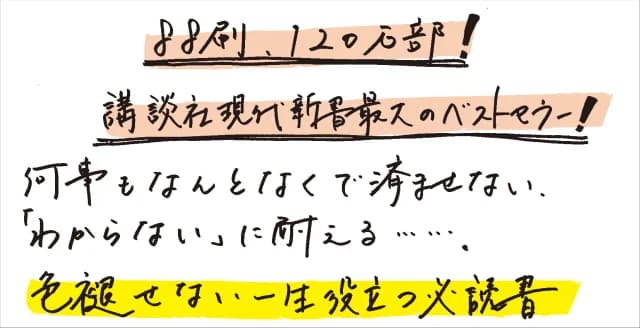 88刷、120万部!
講談社現代新書最大のベストセラー!
何事もなんとなくで済ませない、
「わからない」に耐える……。
色褪せない一生役立つ必読書